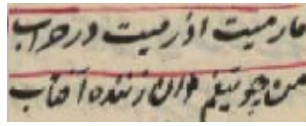 مارمیت اذرمیت در حراب
من چو تیغم وان زننده آفتاب